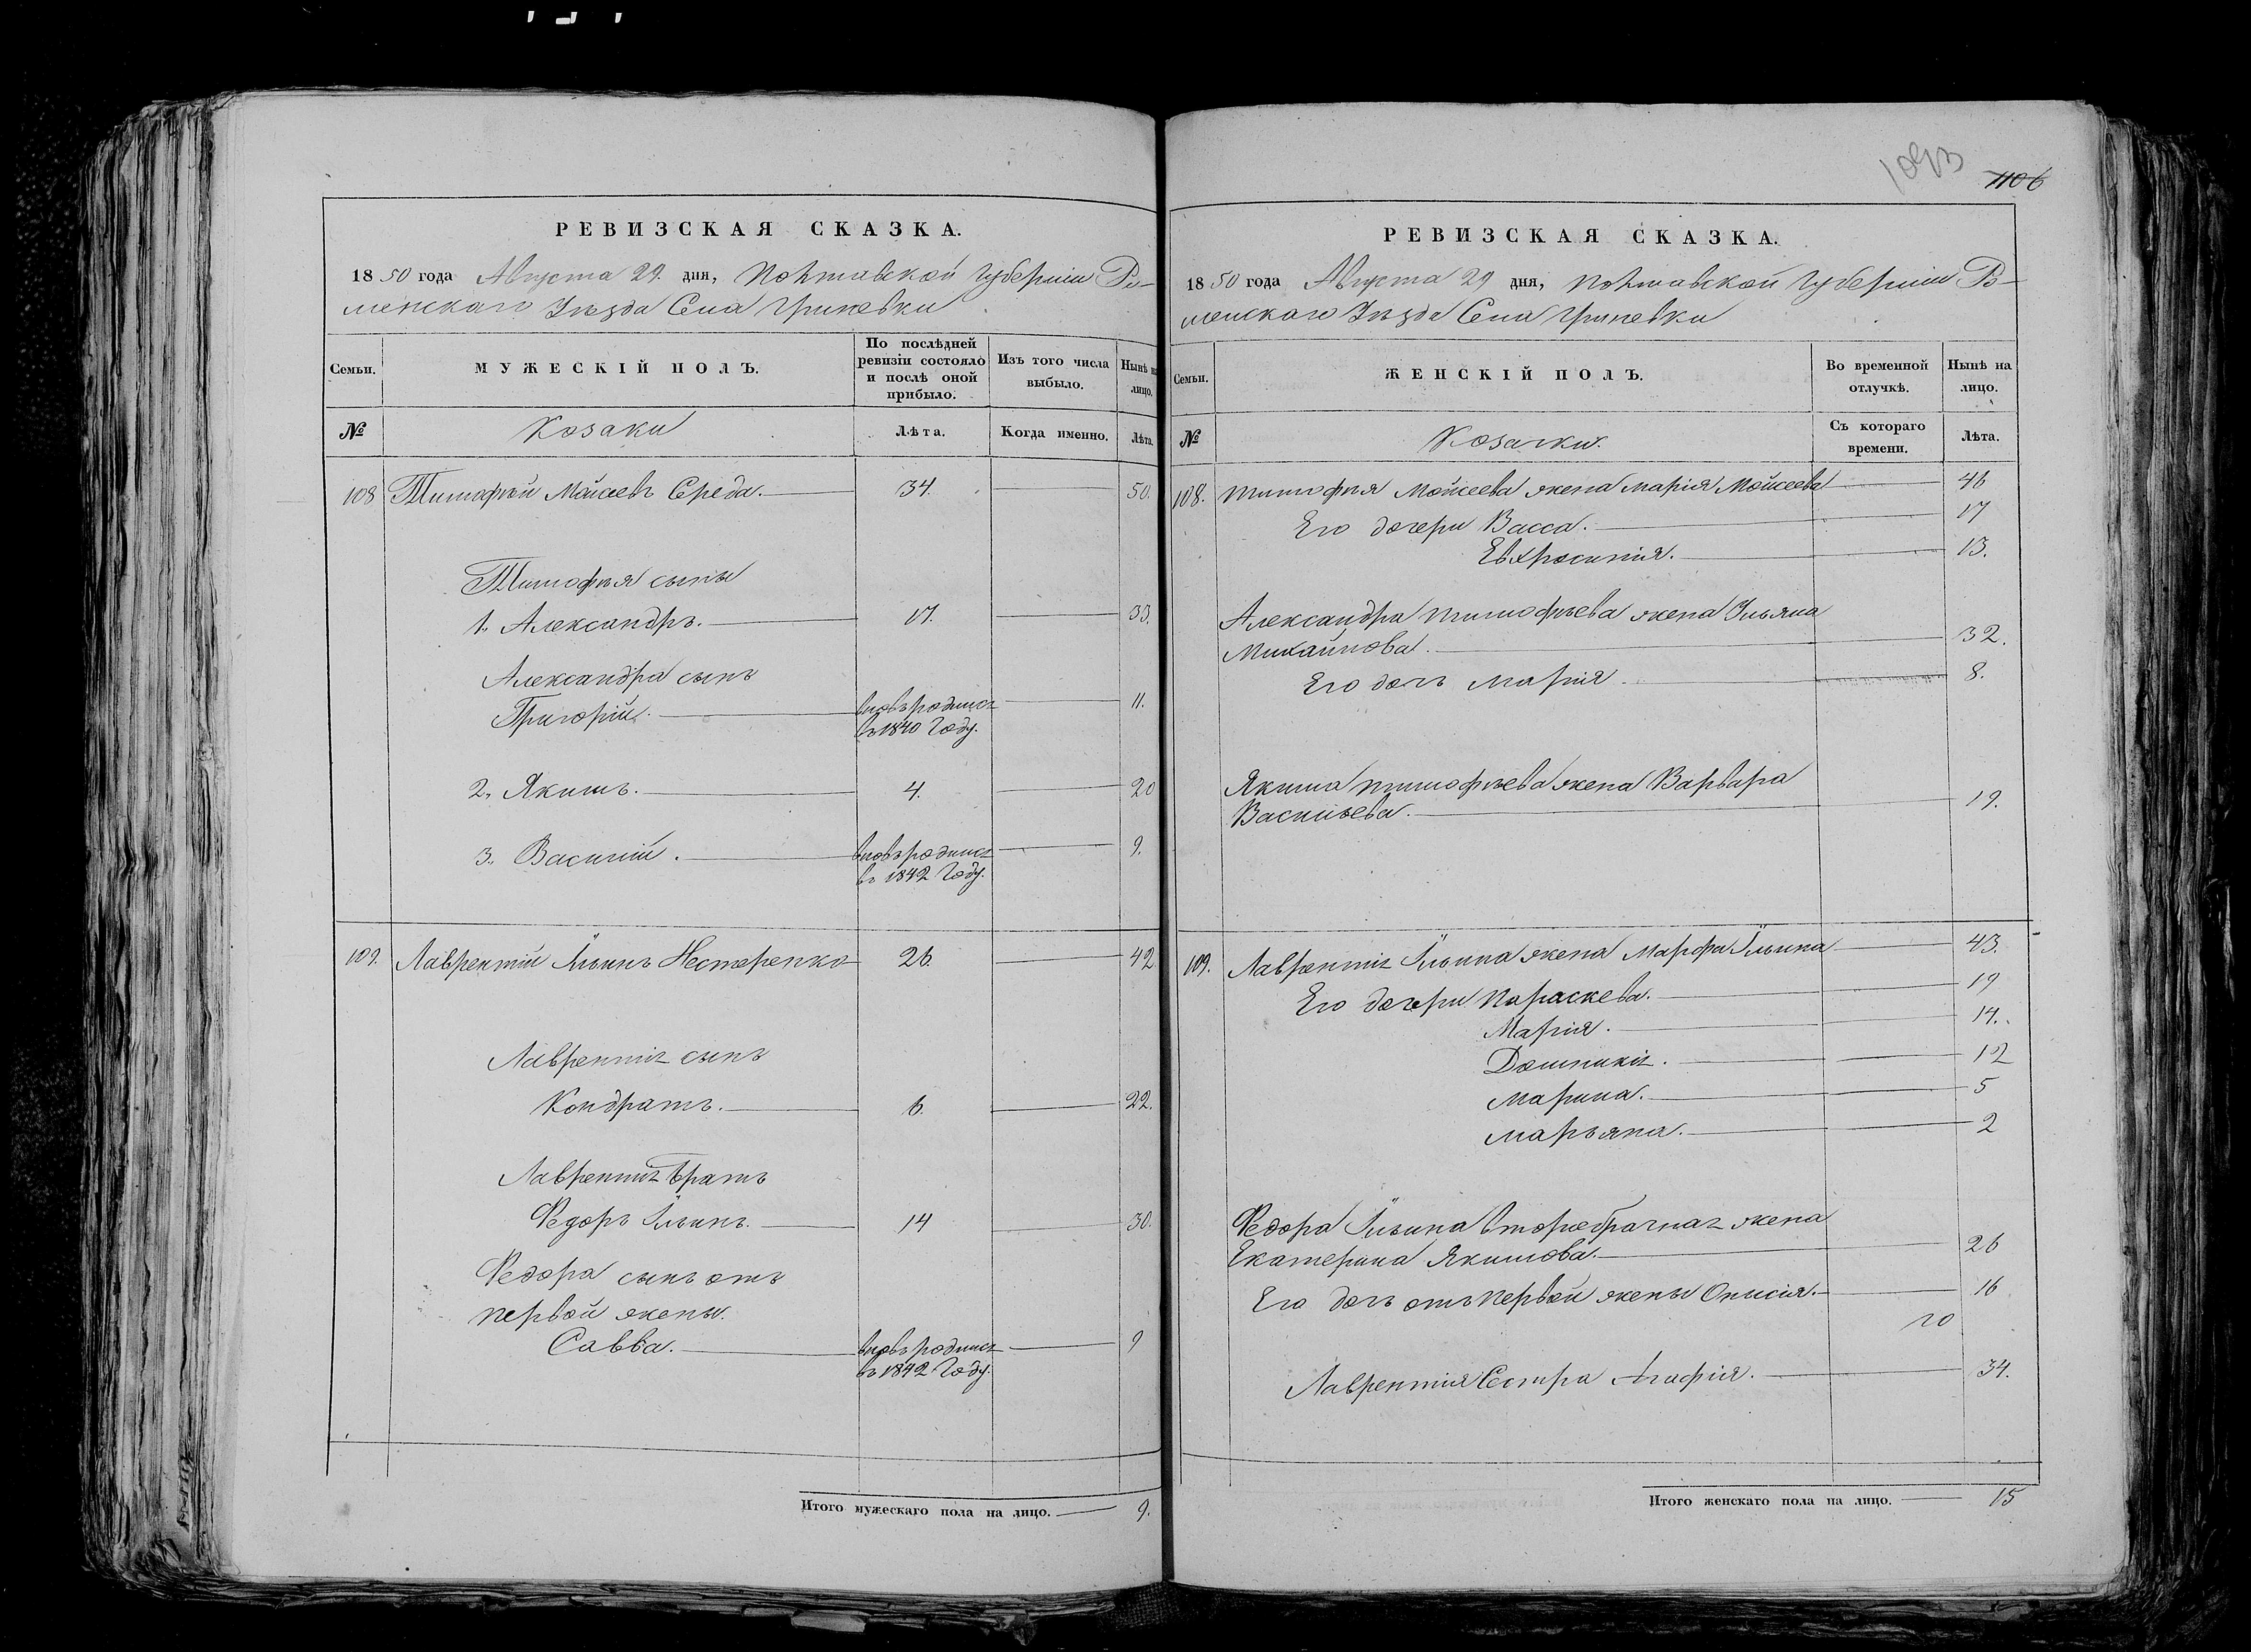 1093
1106
РЕВИЗСКАЯ СКАЗКА.
1850 года Августа 29. дня, Полтавской Губерніи Ро-
менскаго Уѣзда Села Гриневки
Семьи.
МУЖЕСКІЙ ПОЛЪ.
По послѣдней ревизіи состояло и послѣ оной прибыло.
Изъ того числа выбыло.
Нынѣ на лицо.
№
Козаки
Лѣта.
Когда именно.
Лѣта.
108 Тимофѣй Мойсеевъ Середа. 34. 50.
Тимофѣя сыны
1. Александръ. 17. 33.
Александра сынъ
Григорій. вновь родился 11.
въ 1840 Году.
2. Якимъ. 4. 20
3. Василій. вновь родился 9.
въ 1842 Году.
109. Лаврентій Ильинъ Нестеренко 26. 42
Лаврентія сынъ
Кондратъ. 6. 22.
Лаврентія братъ
Федоръ Ильинъ. 14 30.
Федора сынъ отъ
первой жены.
Савва. вновь родился 9
въ 1842 Году.
Итого мужескаго пола на лицо. 9.
РЕВИЗСКАЯ СКАЗКА.
1850 года Августа 29 дня, Полтавской Губерніи Ро-
менскаго Уѣзда Села Гриневки
Семьи.
ЖЕНСКІЙ ПОЛЪ.
Во временной отлучкѣ.
Нынѣ на лицо.
№
Козачки.
Съ котораго времени.
Лѣта.
108. Тимофея Мойсеева жена Марія Мойсеева 46
Его дочери Васса. 17
Евхросинія. 13.
Александра Тимофѣева жена Ульяна
Михайлова. 32.
Его дочь Марія. 8.
Якима Тимофѣева жена Варвара
Васильева. 19.
109. Лаврентія Ильина жена Марфа Ильина 43.
Его дочери Параскева. 19
Марія. 14.
Домникія. 12
Марина. 5
Марьяна. 2
Федора Ильина второбрачная жена
Екатерина Якимова. 26
Его дочь отъ первой жены Онисія. 16
10
Лаврентія Сестра Агафія. 34.
Итого женскаго пола на лицо. 15